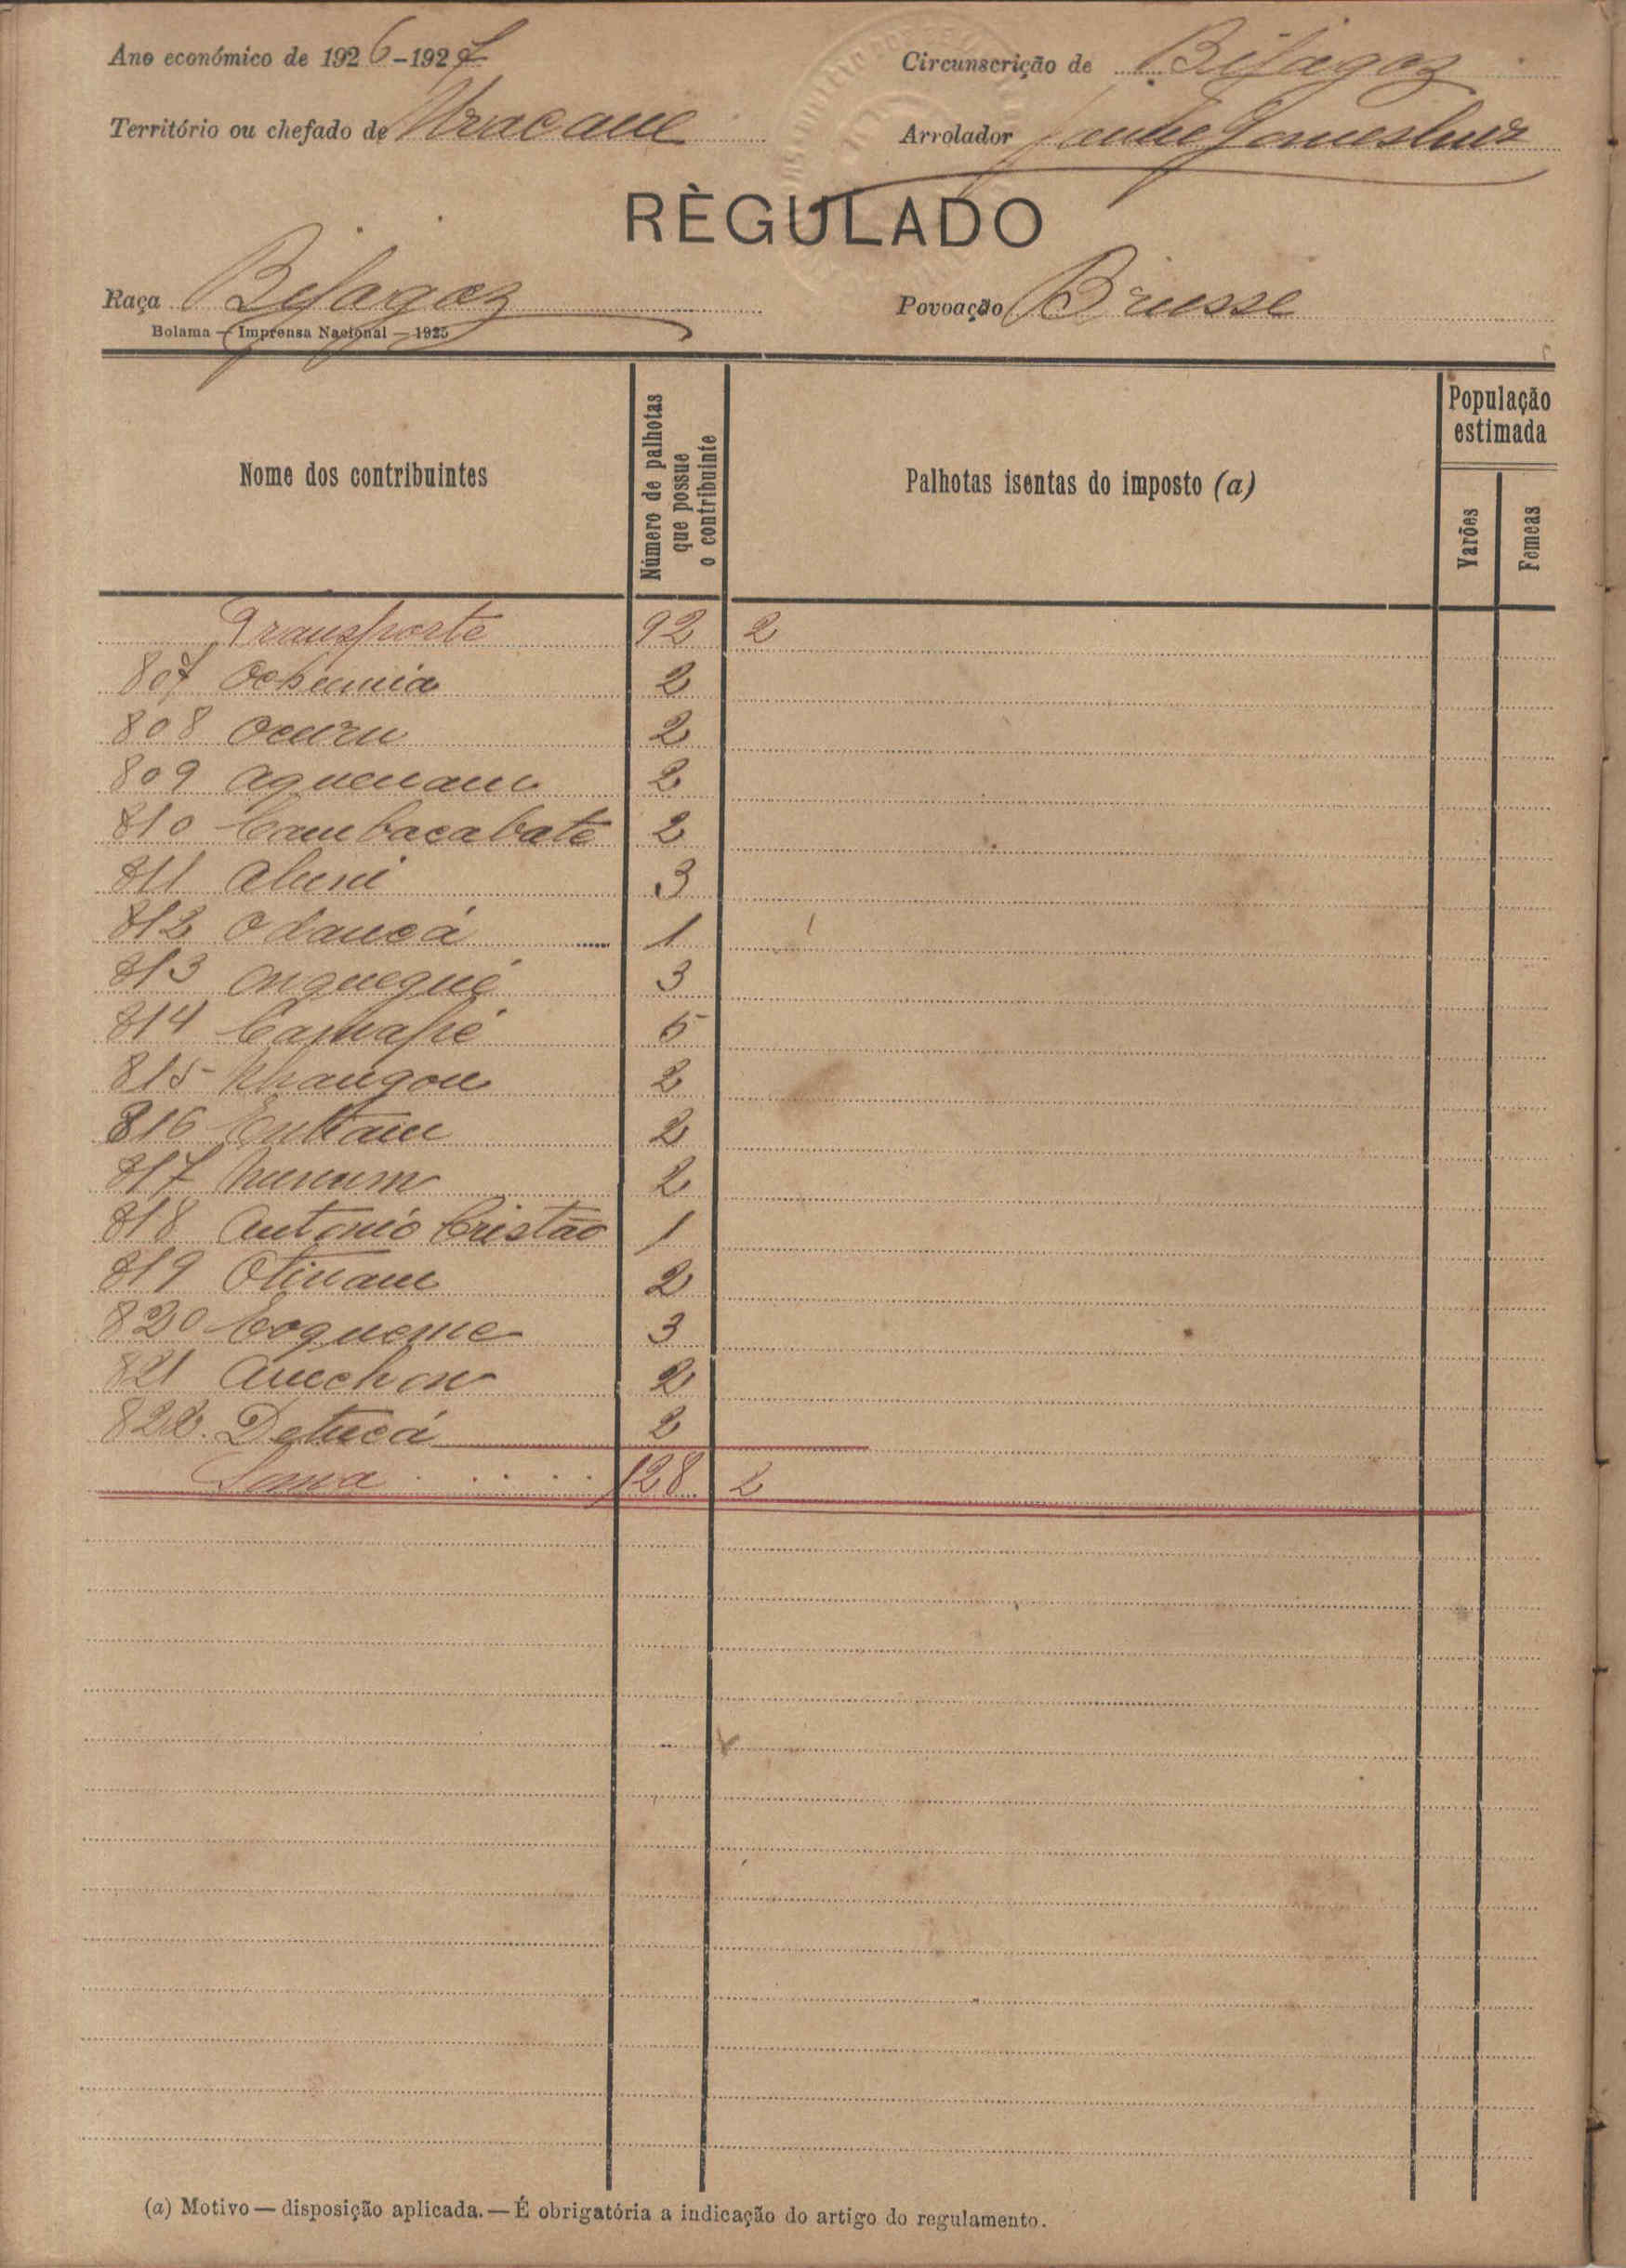 Ano económico de 1926-1927
Circunscrição de Bijagoz
Território ou chefado de Uracane
Arrolador
RÈGULADO
Raça Bijagoz
Povoação Briesse
Bolama — Imprensa Nacional — 1925
Nome dos contribuintes
Número de palhotas que possue o contribuinte
Palhotas isentas do imposto (a)
População estimada
Varões
Femeas
Transporte 92 2
807 2
808 Ocuru 2
809 Aquenam 2
810 Cambacabate 2
811 Aluni 3
812 Odancá 1
813 Onguegué 3
814 5
815 2
816 2
817 2
818 António Cristão 1
819 Otinam 2
820 Coqueme 3
821 Anechon 2
822. Detucá 2
Soma . . . . . 128 2
(a) Motivo — disposição aplicada. — É obrigatória a indicação do artigo do regulamento.